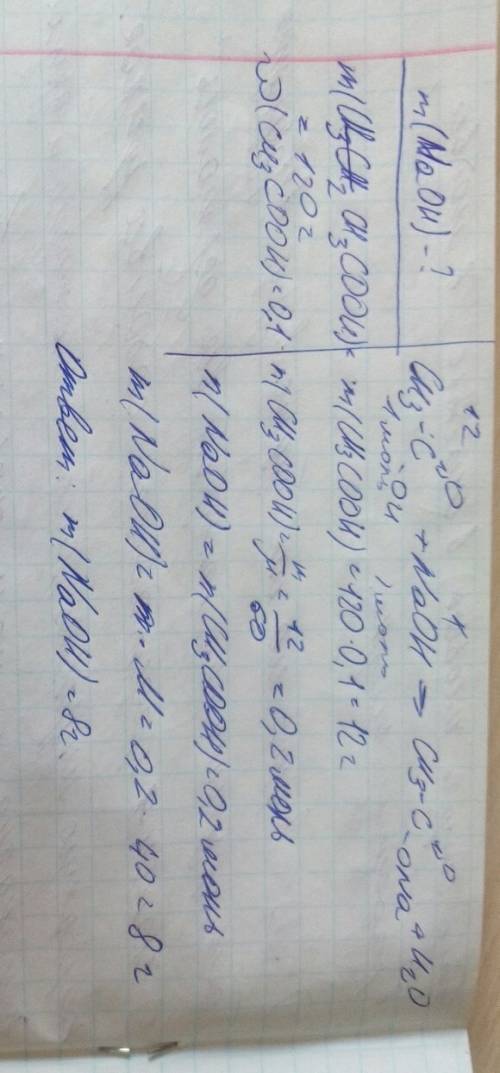 m(NaOH)-?
m(CH₃COOH)=
= 120 г
ω(CH₃COOH)=0,1
12 x
CH₃-C=O -OH + NaOH → CH₃-C=O -ONa + H₂O
1 моль 1 моль
m(CH₃COOH)=120·0,1=12 г
n(CH₃COOH)=m/M=12/60=0,2 моль
n(NaOH)=n(CH₃COOH)=0,2 моль
m(NaOH)=n·M=0,2·40=8 г
Ответ: m(NaOH)=8г.